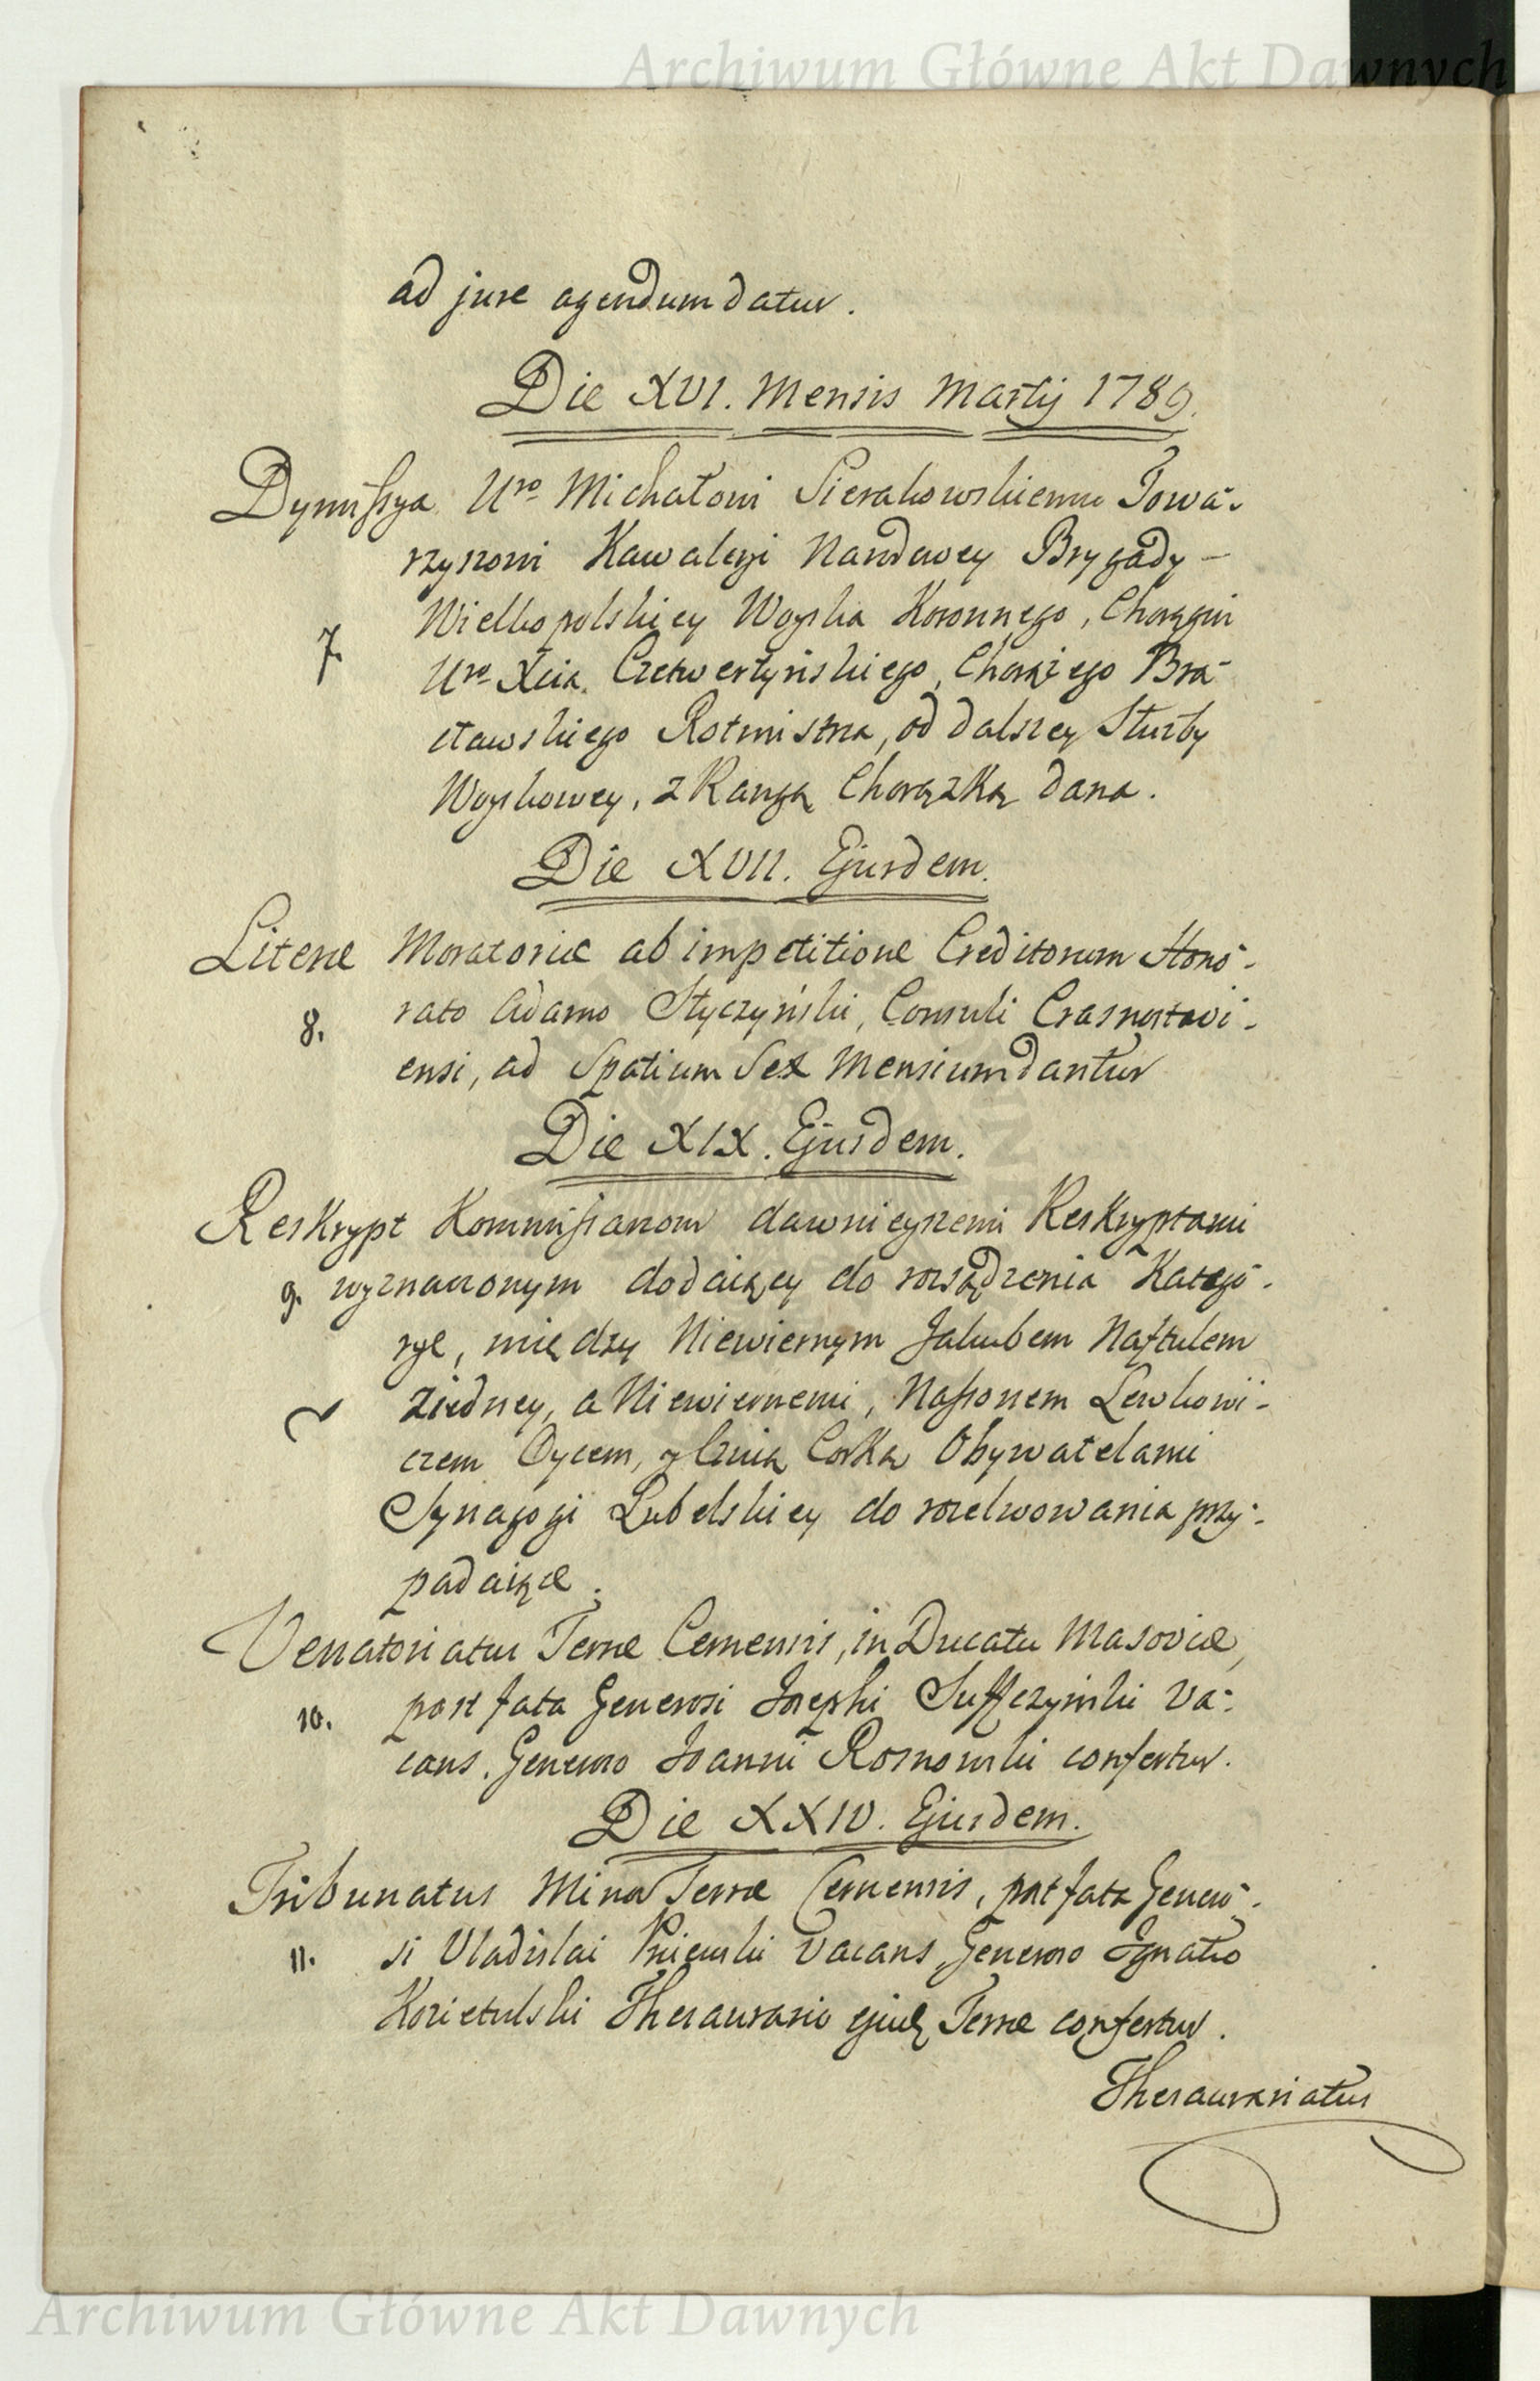 Archiwum Główne Akt Dawnych
ad jure agendum datur.
Die XVI. Mensis Martij 1789.
Dymissya Uro Michałowi Sierakowskiemu Towa-
rzyszowi Kawaleryi Narodowey Brygady
7. Wielkopolskiey Woyska Koronnego, Chorągwi
Uro Xcia Czetwertyńskiego, Chorążego Bra-
cławskiego Rotmistrza, od dalszey Służby
Woyskowey, z Rangą Chorążką dana.
Die XVII. Ejusdem.
Literæ Moratoriæ ab impetitione Creditorum Hono-
8. rato Adamo Styczyński, Consuli Crasnostavi-
ensi, ad Spatium Sex Mensium dantur
Die XIX. Ejusdem.
Reskrypt Kommissarzom dawnieyszemi Reskryptami
9. wyznaczonym dodaiący do rozsądzenia Katego-
rye, między Niewiernym Jakubem Naftulem
z iedney, a Niewiernemi, Nassonem Lewkowi-
czem Oycem, y Córką Obywatelami
Synagogi Lubelskiey do rozelwowania przy-
padaiące.
Venatoriatus Terræ Cernensis, in Ducatu Masoviæ,
10. post fata Generosi Josephi Suffczyński Va-
cans, Generoso Joanni Rosnowski confertur.
Die XXIV. Ejusdem.
Tribunatus Minor Terræ Cernensis, post fata Genero-
11. si Vladislai Vacans, Generoso Ignatio
Kozietulski Thesaurario ejusd Terræ confertur.
Thesaurariatus
Archiwum Główne Akt Dawnych